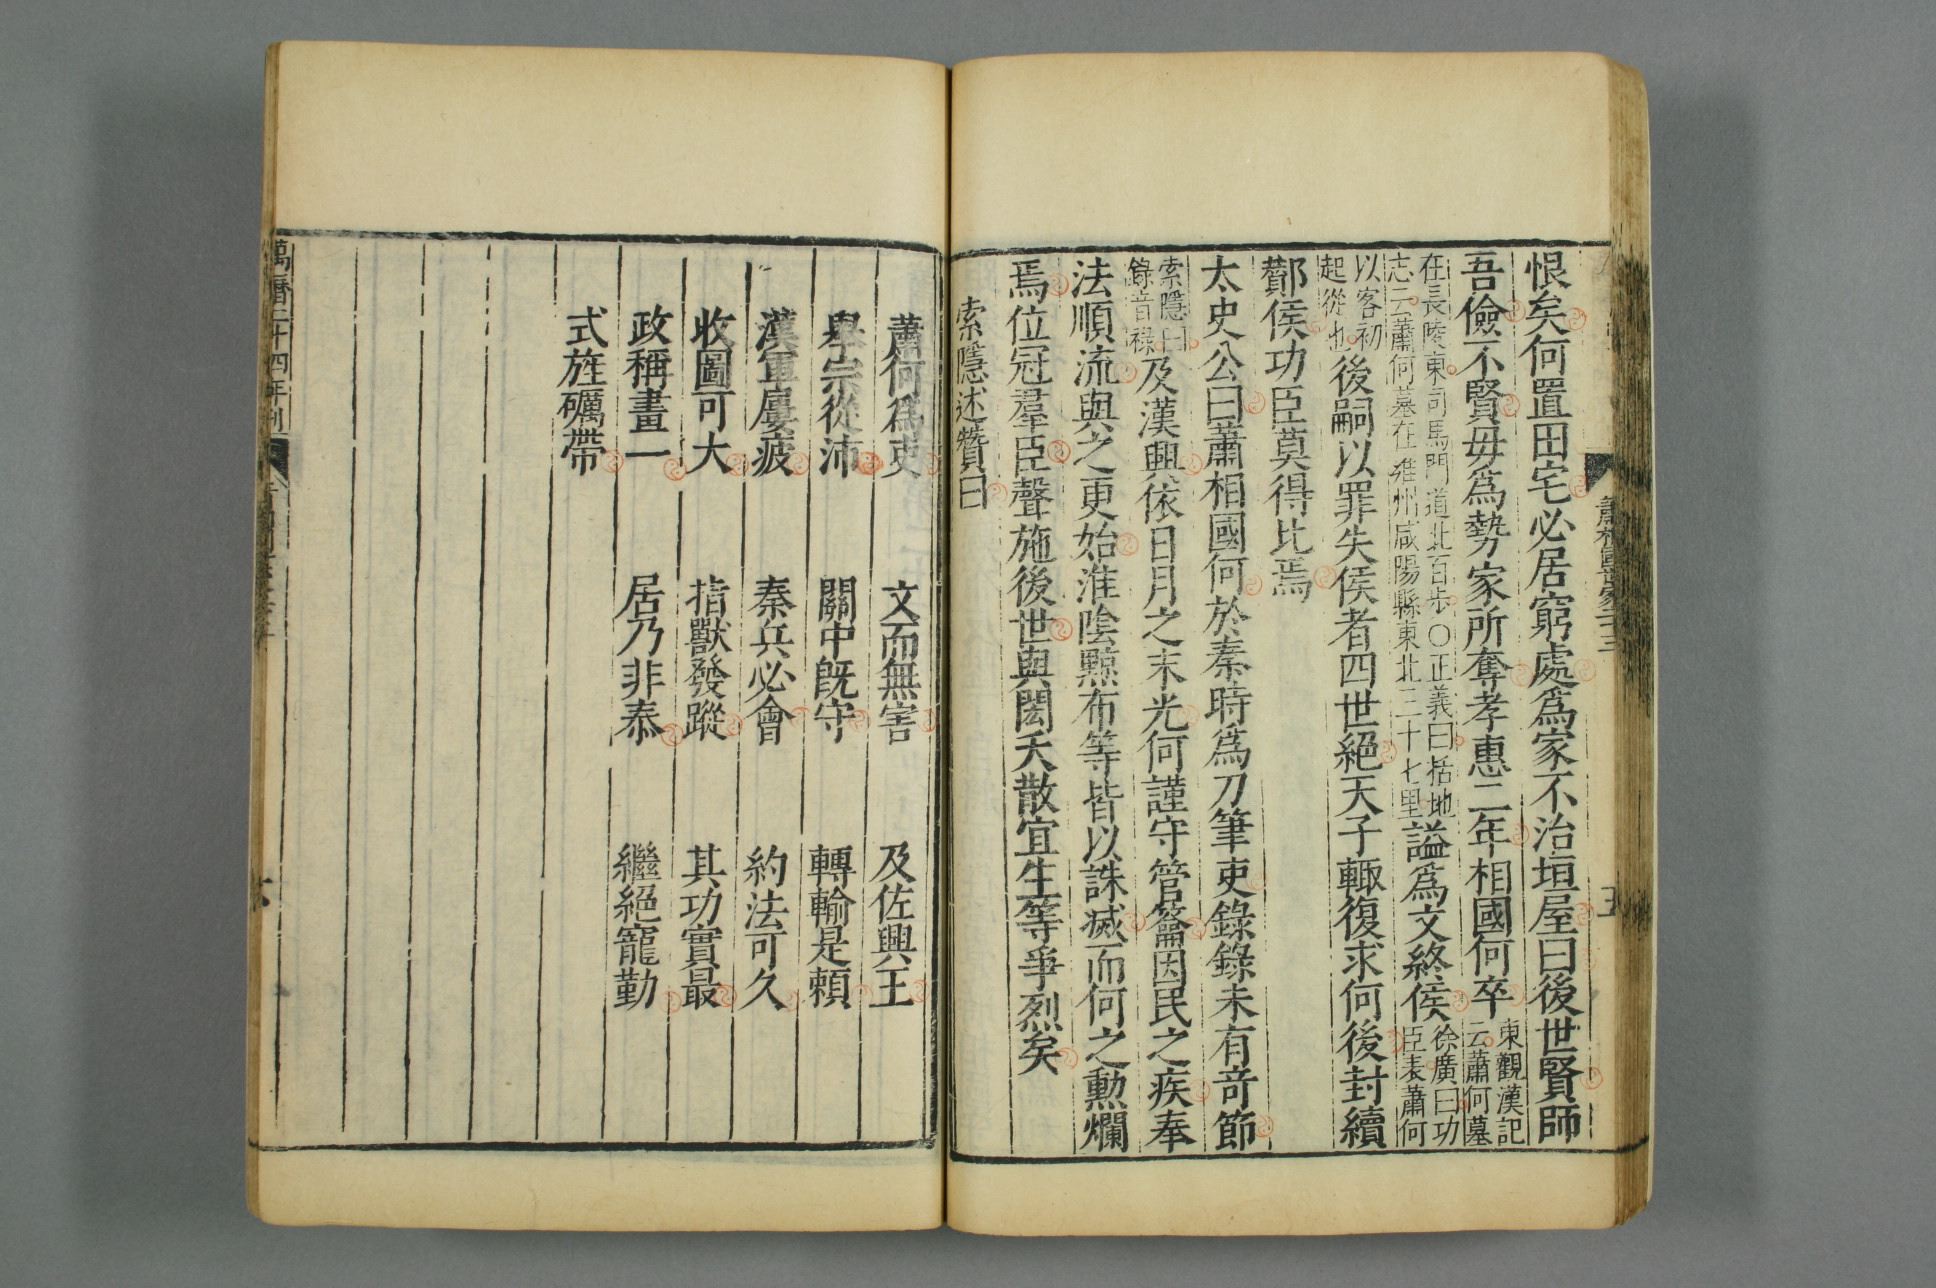 蕭相國世家二十三
五
恨矣何置田宅必居窮處爲家不治垣屋曰後世賢師
吾儉不賢毋爲勢家所奪孝惠二年相國何卒東觀漢記
云蕭何墓
在長陵東司馬門道北百步〇正義曰括地
志云蕭何墓在雍州咸陽縣東北三十七里謚爲文終侯徐廣曰功
臣表蕭何
以客初
起從也後嗣以罪失侯者四世絕天子輒復求何後封續
酇侯功臣莫得比焉
太史公曰蕭相國何於秦時爲刀筆吏錄錄未有奇節
索隱曰
錄音祿及漢興依日月之末光何謹守管籥因民之疾奉
法順流與之更始淮陰黥布等皆以誅滅而何之勳爛
焉位冠羣臣聲施後世與閎夭散宜生等爭烈矣
索隱述贊曰
蕭何爲吏 文而無害 及佐興王
舉宗從沛 關中旣守 轉輸是賴
漢軍屢疲 秦兵必會 約法可久
收圖可大 指獸發蹤 其功實最
政稱畫一 居乃非泰 繼絕寵勤
式旌礪帶
萬曆二十四年刊
六